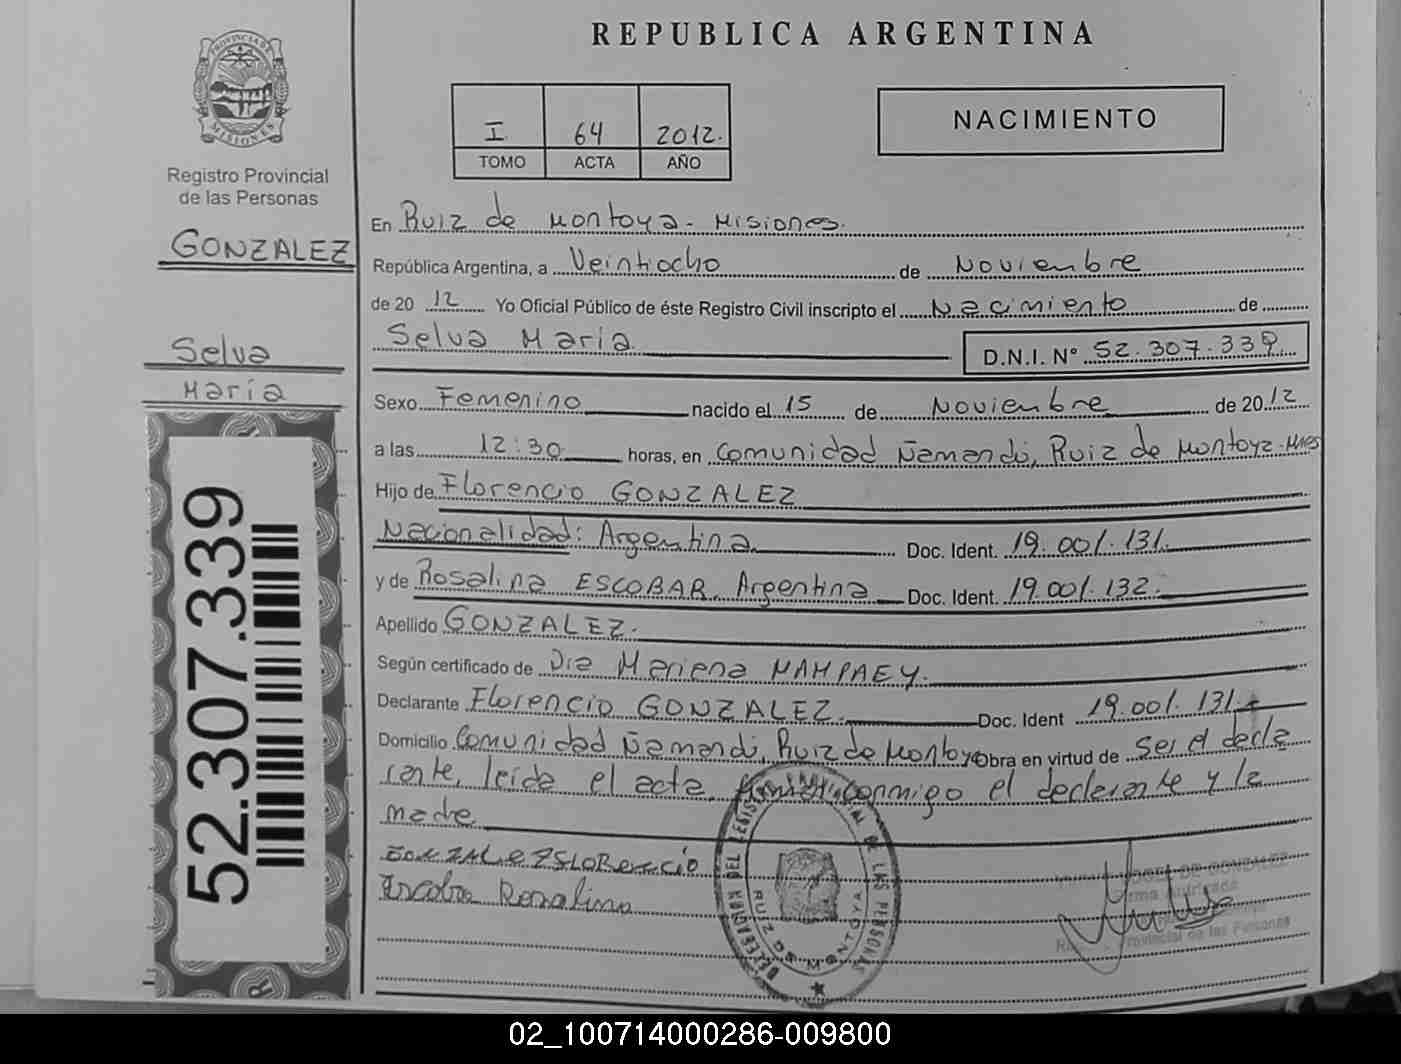 REPUBLICA ARGENTINA
PROVINCIA DE MISIONES
Registro Provincial
de las Personas
GONZALEZ
Selva
María
52.307.339
I 64 2012.
TOMO ACTA AÑO
NACIMIENTO
En Ruiz de Montoya - Misiones.
República Argentina, a Veintiocho de Noviembre
de 2012 Yo Oficial Público de éste Registro Civil inscripto el Nacimiento de
Selva María D.N.I. N° 52.307.339
Sexo Femenino nacido el 15 de Noviembre de 2012
a las 12:30 horas, en Comunidad Ñamandú, Ruiz de Montoya - Mnes
Hijo de Florencio GONZALEZ
Nacionalidad: Argentina Doc. Ident. 19.001.131.
y de Rosalina ESCOBAR, Argentina Doc. Ident. 19.001.132.
Apellido GONZALEZ.
Según certificado de Dra Mariena MAMPAEY.
Declarante Florencio GONZALEZ. Doc. Ident 19.001.131
Domicilio Comunidad Ñamandú, Ruiz de Montoya Obra en virtud de ser el decla
rante, leída el acta, firman conmigo el declarante y la
madre
Escobar Rosalina
RUIZ DE MONTOYA
Provincial de las Personas
02_100714000286-009800